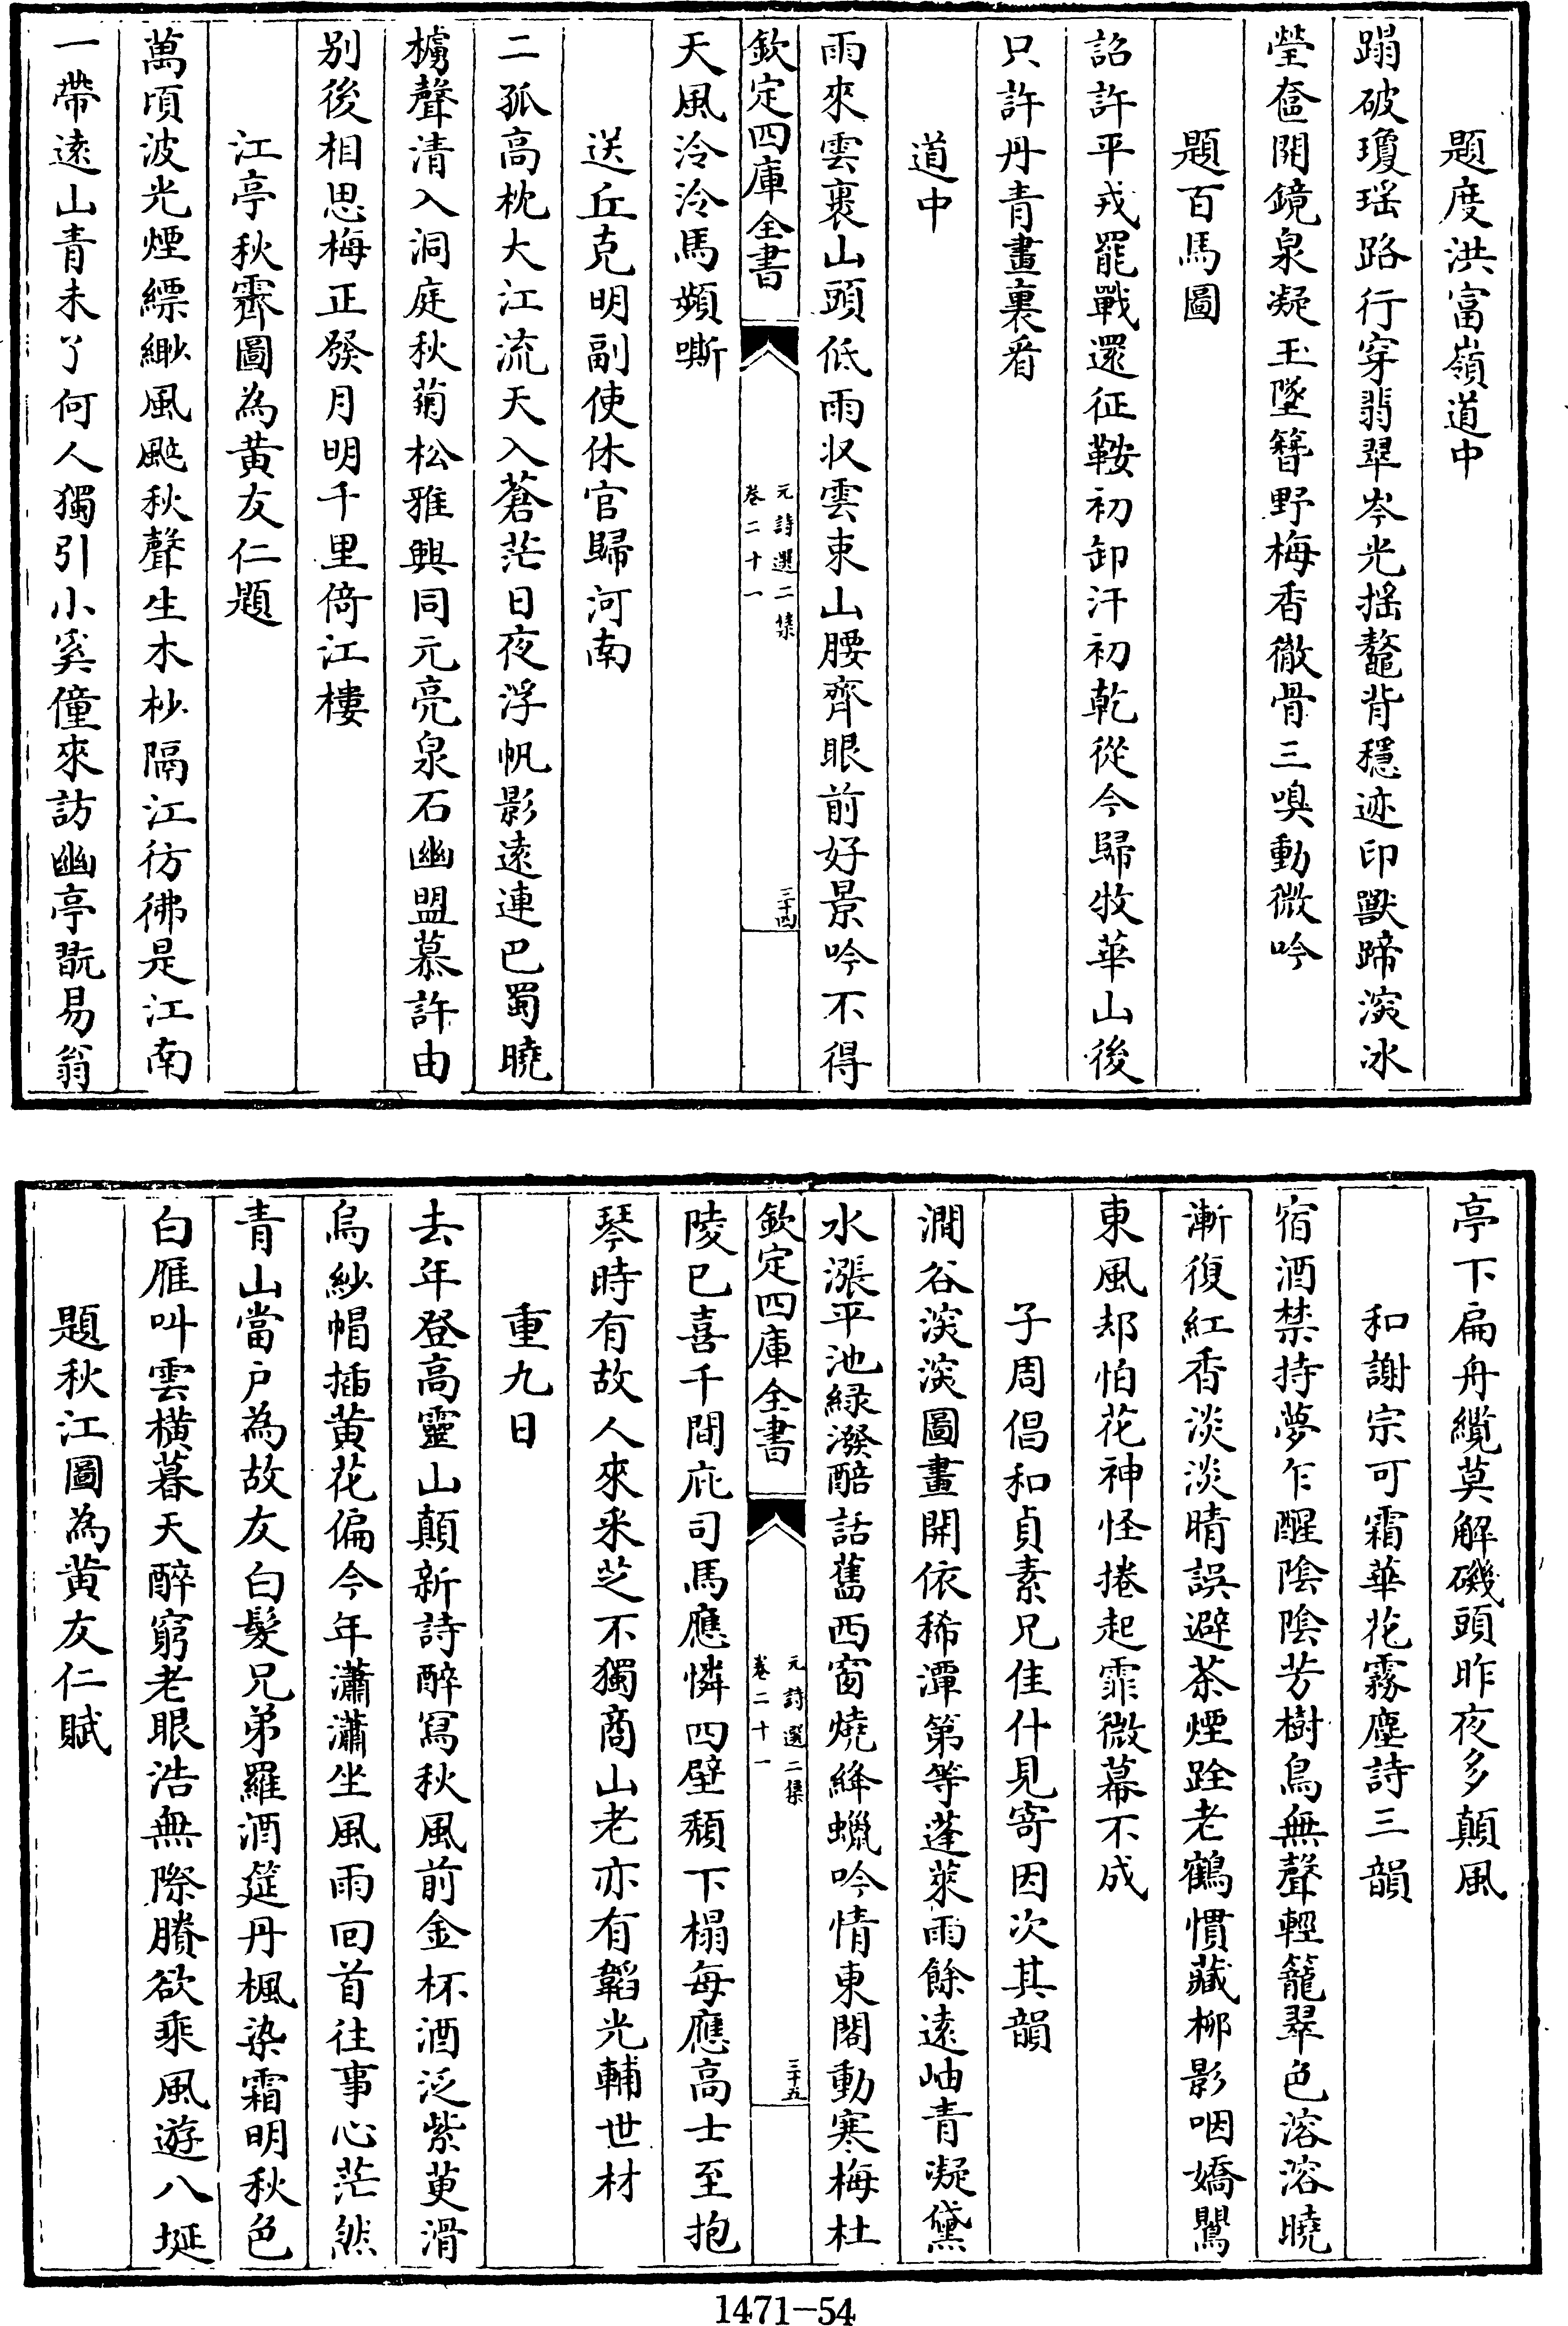 題度洪富嶺道中
蹋破瓊瑤路行穿翡翠岑光搖鼇背穩迹印獸蹄深冰
瑩奩開鏡泉凝玉墜簪野梅香徹骨三嗅動微吟
題百馬圖
詔許平戎罷戰還征鞍初卸汗初乾從今歸牧華山後
只許丹青畫裏看
道中
雨來雲裹山頭低雨收雲束山腰齊眼前好景吟不得
欽定四庫全書
元詩選二集
卷二十一
三十四
天風泠泠馬頻嘶
送丘克明副使休官歸河南
二孤高枕大江流天入蒼茫日夜浮帆影遠連巴蜀曉
櫓聲清入洞庭秋菊松雅興同元亮泉石幽盟慕許由
別後相思梅正發月明千里倚江樓
江亭秋霽圖為黃友仁題
萬頃波光煙縹緲風颭秋聲生木杪隔江彷彿是江南
一帶遠山青未了何人獨引小奚僮來訪幽亭翫易翁
亭下扁舟纜莫解磯頭昨夜多顛風
和謝宗可霜華花霧塵詩三韻
宿酒禁持夢乍醒陰陰芳樹鳥無聲輕籠翠色溶溶曉
漸復紅香淡淡晴誤避茶煙跧老鶴慣藏柳影咽嬌鸎
東風却怕花神怪捲起霏微幕不成
子周倡和貞素兄佳什見寄因次其韻
澗谷深深圖畫開依稀潭第等蓬萊雨餘遠岫青凝黛
水漲平池緑潑醅話舊西窗燒絳蠟吟情東閣動寒梅杜
欽定四庫全書
元詩選二集
卷二十一
三十五
陵已喜千間庇司馬應憐四壁頹下榻每應高士至抱
琴時有故人來采芝不獨商山老亦有韜光輔世材
重九日
去年登高靈山顛新詩醉寫秋風前金杯酒泛紫萸滑
烏紗帽插黃花偏今年瀟瀟坐風雨回首往事心茫然
青山當戶為故友白髮兄弟羅酒筵丹楓染霜明秋色
白雁叫雲橫暮天醉窮老眼浩無際賸欲乘風遊八埏
題秋江圖為黃友仁賦
1471-54